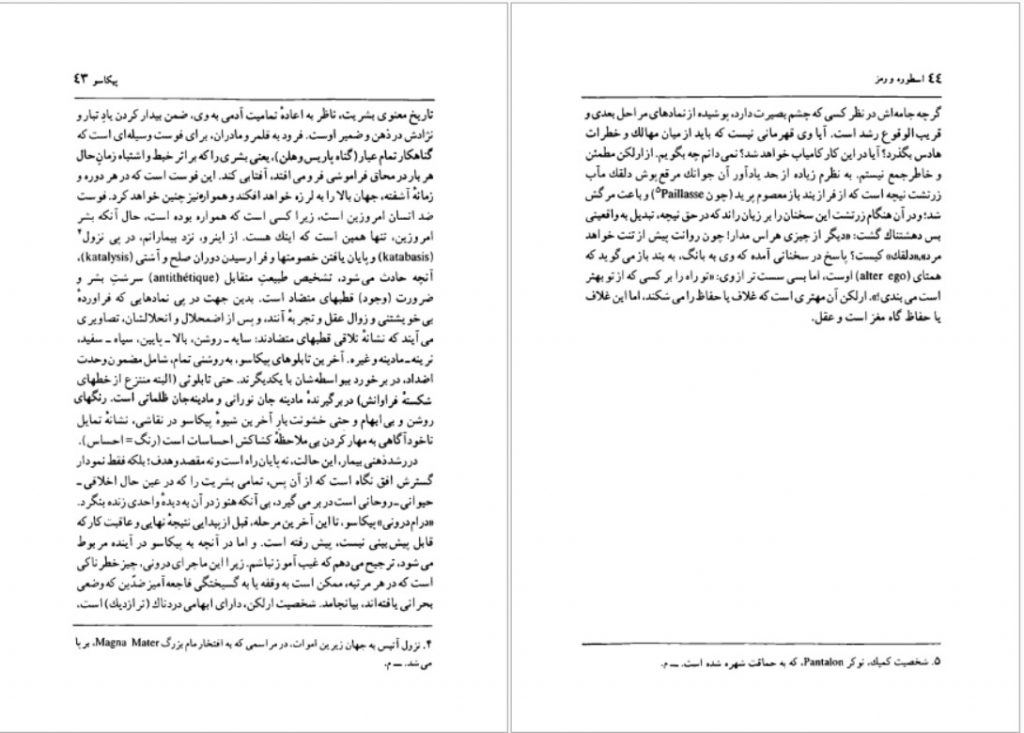 پیکاسو ۴۳
تاریخ معنوی بشریت، ناظر به اعادهٔ تمامیت آدمی به وی، ضمن بیدار کردن یادِ تبار و
نژادش در ذهن و ضمیر اوست. فرود به قلمرو مادران، برای فوست وسیله‌ای است که
گناهکار تمام عیار (گناه پاریس و هلن)، یعنی بشری را که بر اثر خبط و اشتباه زمانِ حال
هر بار در محاق فراموشی فرو می افتد، آفتابی کند. این فوست است که در هر دوره و
زمانهٔ آشفته، جهان بالا را به لرزه خواهد افکند و همواره نیز چنین خواهد کرد. فوست
ضد انسان امروزین است، زیرا کسی است که همواره بوده است، حال آنکه بشر
امروزین، تنها همین است که اینك هست. از اینرو، نزد بیمارانم، در پی نزول۴
(katabasis) و پایان یافتن خصومتها و فرا رسیدن دوران صلح و آشتی (katalysis)،
آنچه حادث می‌شود، تشخیص طبیعتِ متقابل (antithétique) سرشتِ بشر و
ضرورت (وجود) قطبهای متضاد است. بدین جهت در پی نمادهایی که فراوردهٔ
بی‌خویشتنی و زوال عقل و تجربهٔ آنند، و پس از اضمحلال و انحلالشان، تصاویری
می‌آیند که نشانهٔ تلاقی قطبهای متضادند: سایه ـ روشن، بالا ـ پایین، سیاه ـ سفید،
نرینه ـ مادینه و غیره. آخرین تابلوهای پیکاسو، به روشنی تمام، شامل مضمون وحدت
اضداد، در برخورد بیواسطه‌شان با یکدیگرند. حتی تابلوئی (البته منتزع از خطهای
شکستهٔ فراوانش) در برگیرندهٔ مادینه جان نورانی و مادینه‌جان ظلماتی است. رنگهای
روشن و بی‌ابهام و حتی خشونت بارِ آخرین شیوهٔ پیکاسو در نقاشی، نشانهٔ تمایل
ناخودآگاهی به مهار کردن بی‌ملاحظهٔ کشاکش احساسات است (رنگ = احساس).
در رشد ذهنی بیمار، این حالت، نه پایان راه است و نه مقصد و هدف؛ بلکه فقط نمودار
گسترش افق نگاه است که از آن پس، تمامی بشریت را که در عین حال اخلاقی ـ
حیوانی ـ روحانی است در بر می گیرد، بی آنکه هنوز در آن به دیدهٔ واحدی زنده بنگرد.
«درام درونی» پیکاسو، تا این آخرین مرحله، قبل از پیدایی نتیجهٔ نهایی و عاقبت کار که
قابل پیش‌بینی نیست، پیش رفته است. و اما در آنچه به پیکاسو در آینده مربوط
می‌شود، ترجیح می‌دهم که غیب آموز نباشم. زیرا این ماجرای درونی، چیز خطرناکی
است که در هر مرتبه، ممکن است به وقفه یا به گسیختگی فاجعه آمیز ضدّین که وضعی
بحرانی یافته‌اند، بیانجامد. شخصیت ارلکن، دارای ابهامی دردناك (تراژدیك) است.
۴. نزول آتیس به جهان زیرین اموات، در مراسمی که به افتخار مام بزرگ Magna Mater، برپا
می‌شد. ــ م.
۴۴ اسطوره و رمز
گرچه جامه‌اش در نظر کسی که چشم بصیرت دارد، پوشیده از نمادهای مراحل بعدی و
قریب الوقوع رشد است. آیا وی قهرمانی نیست که باید از میان مهالك و خطرات
هادس بگذرد؟ آیا در این کار کامیاب خواهد شد؟ نمی دانم چه بگویم. از ارلکن مطمئن
و خاطرجمع نیستم. به نظرم زیاده از حد یادآور آن جوانك مرقع پوش دلقك مآب
زرتشت نیچه است که از فراز بندباز معصوم پرید (چون Paillasse۵) و باعث مرگش
شد؛ و در آن هنگام زرتشت این سخنان را بر زبان راند که در حق نیچه، تبدیل به واقعیتی
بس دهشتناك گشت: «دیگر از چیزی هراس مدار! چون روانت پیش از تنت خواهد
مرد». «دلقك» کیست؟ پاسخ در سخنانی آمده که وی به بانگ، به بندباز می گوید که
همتای (alter ego) اوست، اما بسی سست تر از وی: «تو راه را بر کسی که از تو بهتر
است می بندی!». ارلکن آن مهتری است که غلاف یا حفاظ را می شکند، اما این غلاف
یا حفاظ گاه مغز است و عقل.
۵. شخصیت کمیك، نوکر Pantalon، که به حماقت شهره شده است. ــ م.